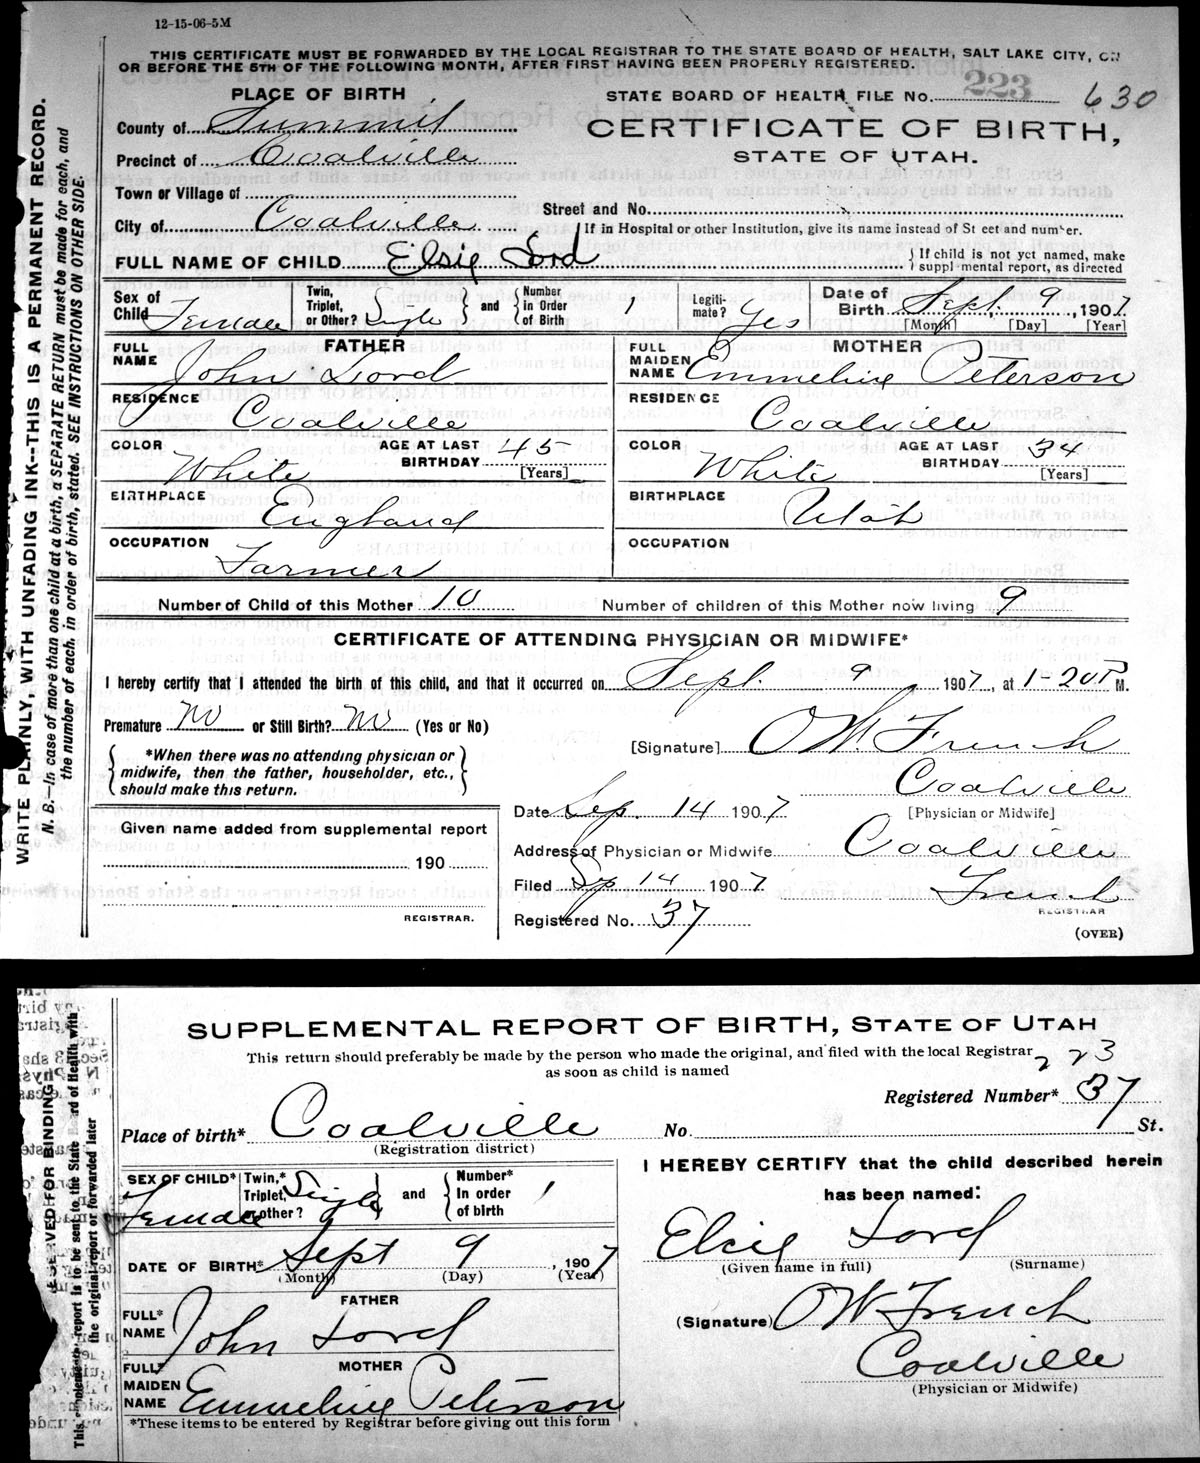 12-15-06-5M
THIS CERTIFICATE MUST BE FORWARDED BY THE LOCAL REGISTRAR TO THE STATE BOARD OF HEALTH, SALT LAKE CITY, ON
OR BEFORE THE 5TH OF THE FOLLOWING MONTH, AFTER FIRST HAVING BEEN PROPERLY REGISTERED.
PLACE OF BIRTH
STATE BOARD OF HEALTH FILE NO. 223 630
County of Summit
CERTIFICATE OF BIRTH,
Precinct of Coalville
STATE OF UTAH.
Town or Village of
Street and No.
City of Coalville
If in Hospital or other Institution, give its name instead of St eet and number.
FULL NAME OF CHILD Elsie Lord
If child is not yet named, make
suppl mental report, as directed
Sex of Child Female
Twin, Triplet, or Other? Single and Number in Order of Birth 1
Legiti-mate? Yes
Date of Birth Sept. 9, 1907
[Month] [Day] [Year]
FATHER
FULL NAME John Lord
RESIDENCE Coalville
COLOR White
AGE AT LAST BIRTHDAY 45
[Years]
BIRTHPLACE England
OCCUPATION Farmer
MOTHER
FULL MAIDEN NAME Emmeline Peterson
RESIDENCE Coalville
COLOR White
AGE AT LAST BIRTHDAY 34
[Years]
BIRTHPLACE Utah
OCCUPATION
Number of Child of this Mother 10
Number of children of this Mother now living 9
CERTIFICATE OF ATTENDING PHYSICIAN OR MIDWIFE*
I hereby certify that I attended the birth of this child, and that it occurred on Sept. 9 1907, at 1-20 P M.
Premature No or Still Birth? No (Yes or No)
*When there was no attending physician or
midwife, then the father, householder, etc.,
should make this return.
[Signature] O W. French
Coalville
[Physician or Midwife]
Given name added from supplemental report
190
REGISTRAR.
Date Sep. 14 1907
Address of Physician or Midwife Coalville
Filed Sep 14 1907
French
REGISTRAR
Registered No. 37
(OVER)
WRITE PLAINLY, WITH UNFADING INK--THIS IS A PERMANENT RECORD.
N. B.—In case of more than one child at a birth, a SEPARATE RETURN must be made for each, and
the number of each, in order of birth, stated. SEE INSTRUCTIONS ON OTHER SIDE.
SUPPLEMENTAL REPORT OF BIRTH, STATE OF UTAH
This return should preferably be made by the person who made the original, and filed with the local Registrar
as soon as child is named
223
Registered Number* 37
Place of birth* Coalville
(Registration district)
No. St.
SEX OF CHILD* Female
Twin,* Triplet, or other? Single and Number* In order of birth 1
DATE OF BIRTH* Sept 9, 1907
(Month) (Day) (Year)
FATHER
FULL* NAME John Lord
MOTHER
FULL* MAIDEN NAME Emmeline Peterson
*These items to be entered by Registrar before giving out this form
I HEREBY CERTIFY that the child described herein
has been named:
Elsie Lord
(Given name in full) (Surname)
(Signature) O W French
Coalville
(Physician or Midwife)
RESERVED FOR BINDING
This supplementary report is to be sent to the State Board of Health with
the original report or forwarded later